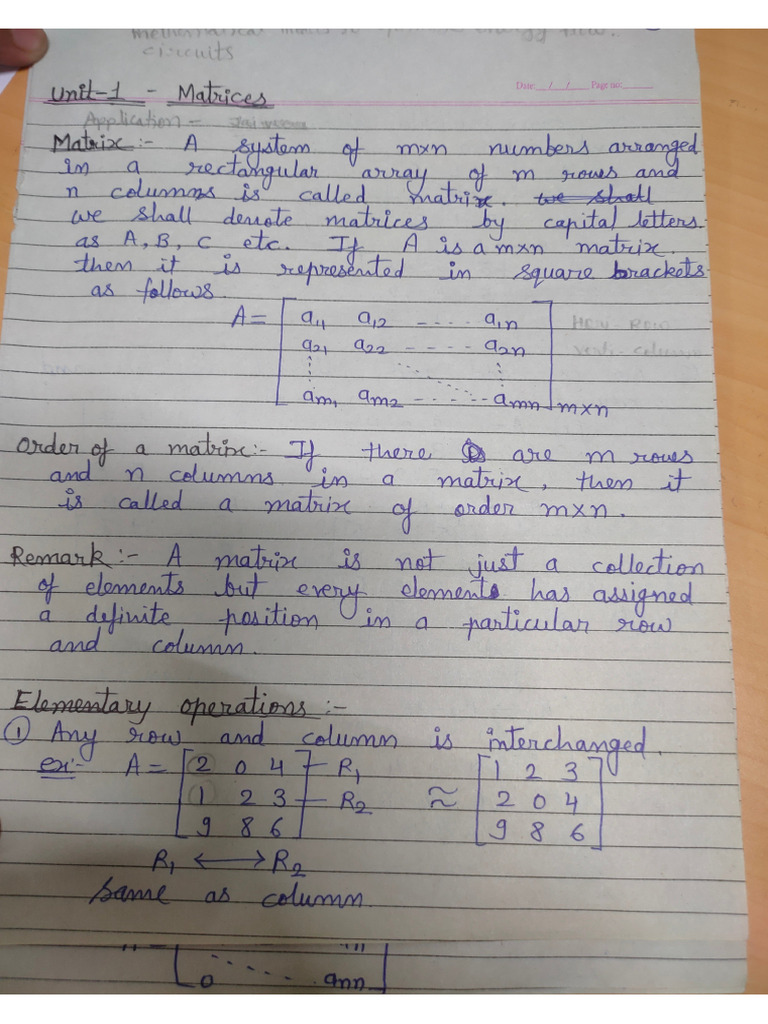 mathematical
circuits
Date: / / Page no:
Unit-1 - Matrices
Application -
Matrix:- A system of m×n numbers arranged
in a rectangular array of m rows and
n columns is called matrix. we shall
we shall denote matrices by capital letters
as A, B, C etc. If A is a m×n matrix.
then it is represented in square brackets
as follows
A = [ a11 a12 ---- a1n
a21 a22 ---- a2n
am1 am2 ----- amn ] m×n
Hori - Row
verti - column
Order of a matrix:- If there is are m rows
and n columns in a matrix, then it
is called a matrix of order m×n.
Remark:- A matrix is not just a collection
of elements but every elements has assigned
a definite position in a particular row
and column.
Elementary operations:-
① Any row and column is interchanged.
ex:- A = [ 2 0 4 ] - R1 [ 1 2 3 ]
[ 1 2 3 ] - R2 ≈ [ 2 0 4 ]
[ 9 8 6 ] [ 9 8 6 ]
R1 ↔ R2
same as column.
0 ann